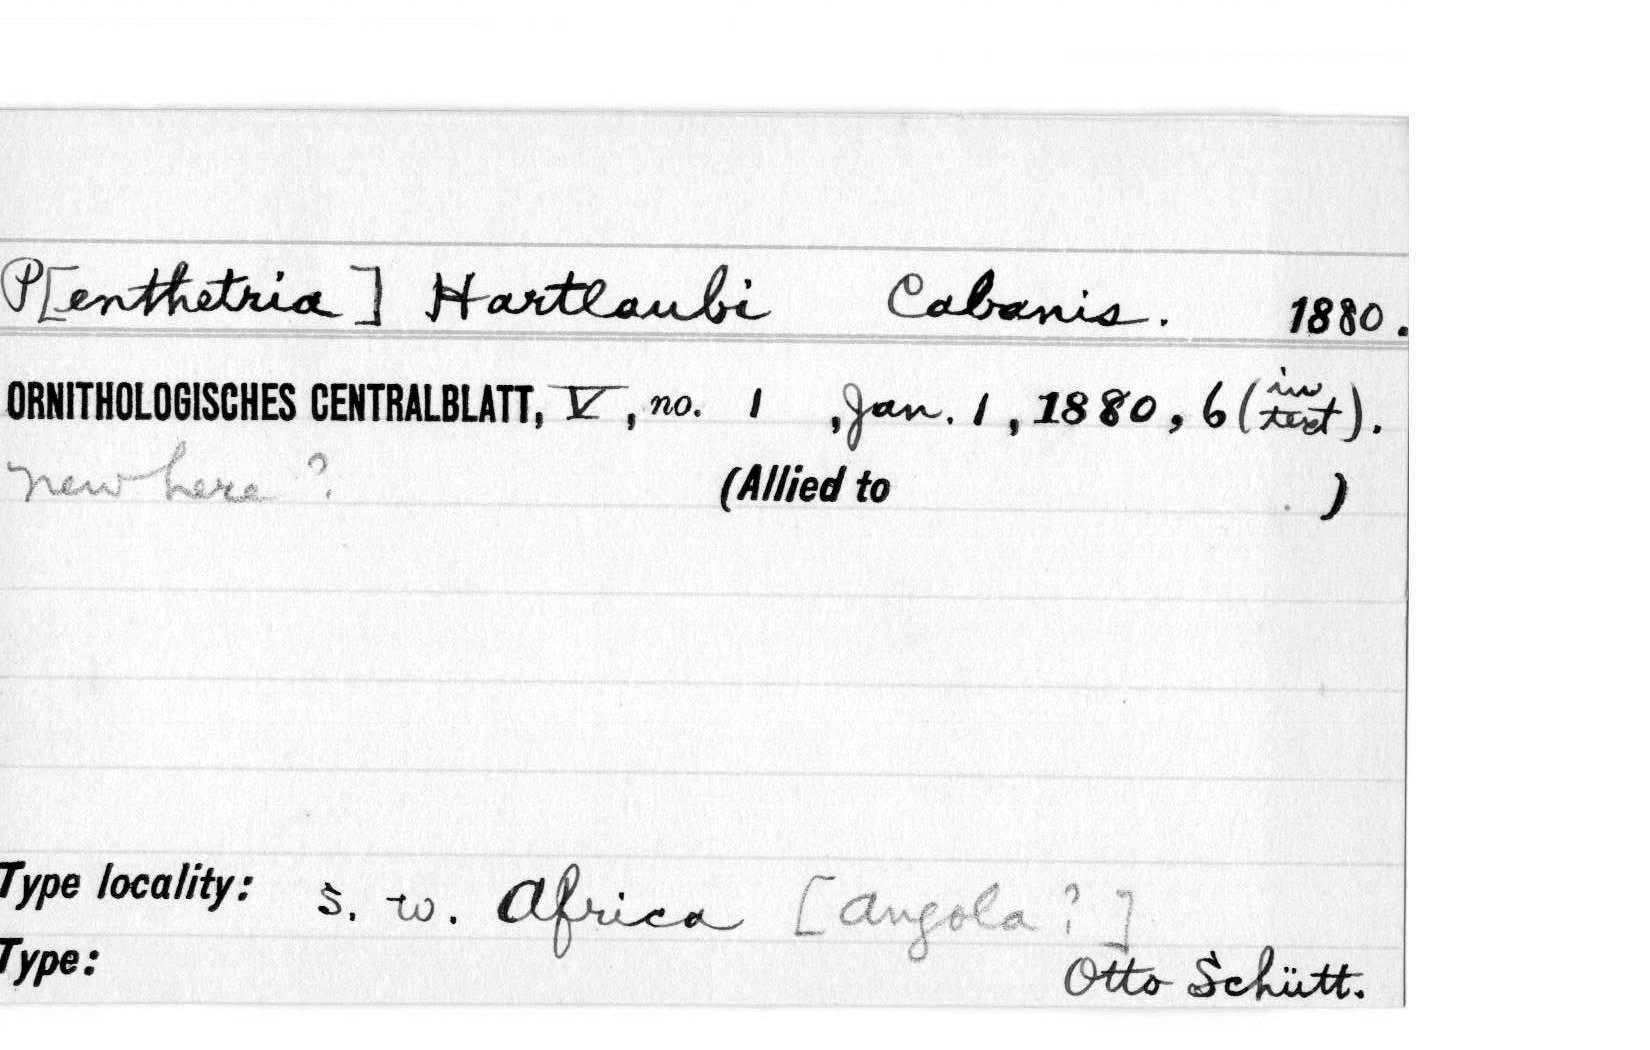 P[enthetria] Hartlaubi Cabanis. 1880.
ORNITHOLOGISCHES CENTRALBLATT, V, no. 1 , Jan. 1, 1880, 6 (in text).
new here? (Allied to )
Type locality: S. W. Africa [Angola?]
Type: Otto Schütt.